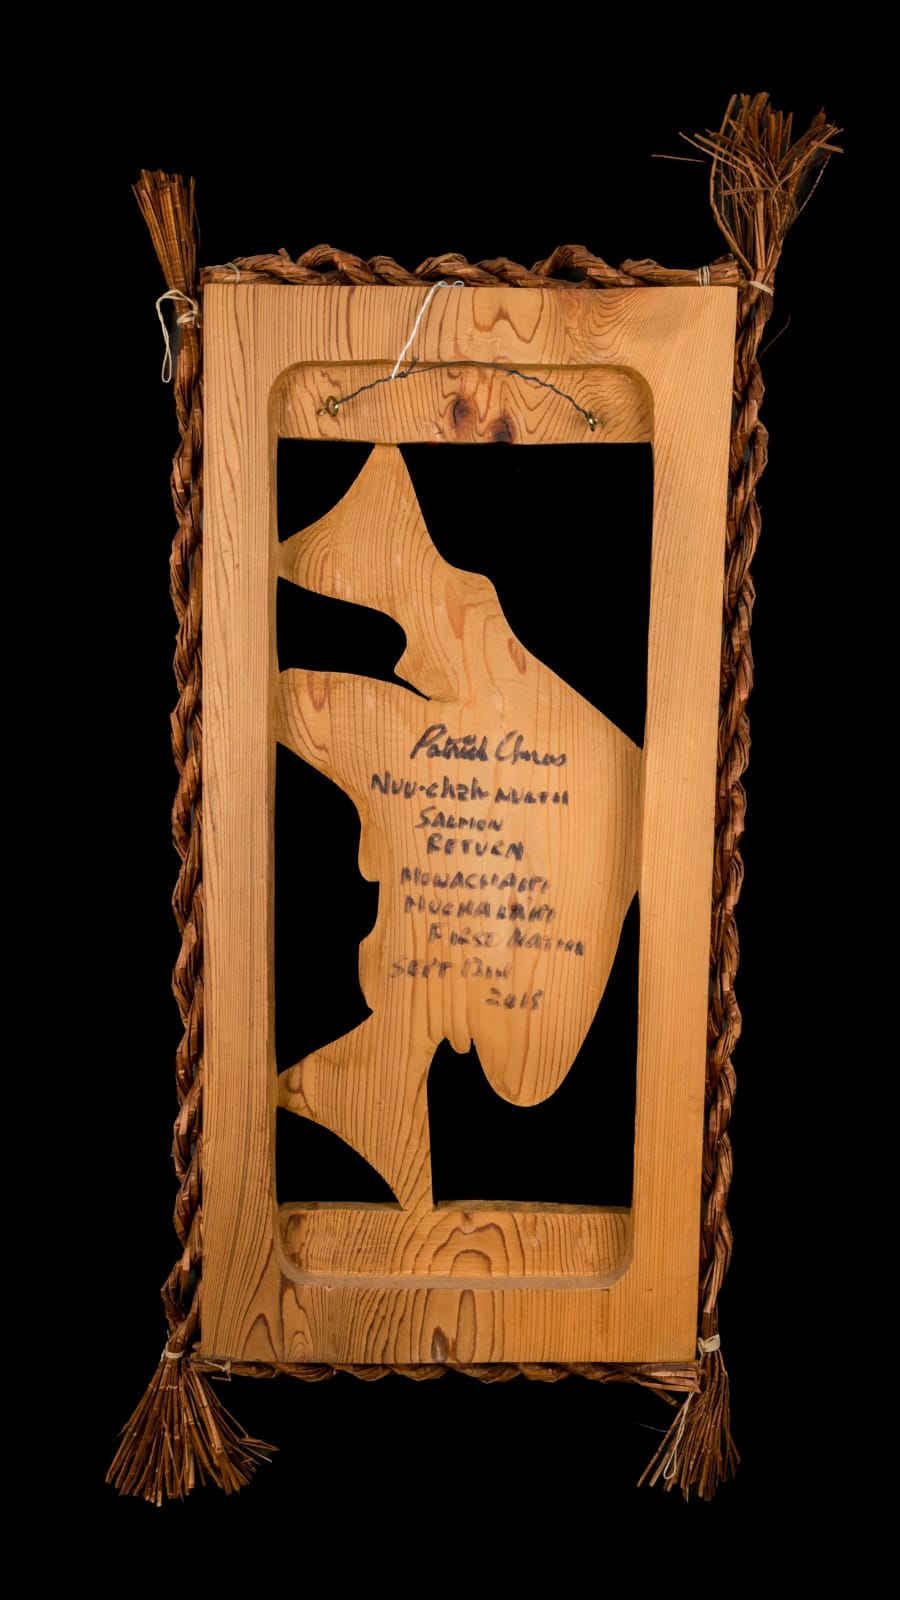 Patrick Amos
NUU-chah-NULTH
SALMON
RETURN
MOWACHAHT
MUCHALAHT
FIRST NATION
SEPT 13TH
2018